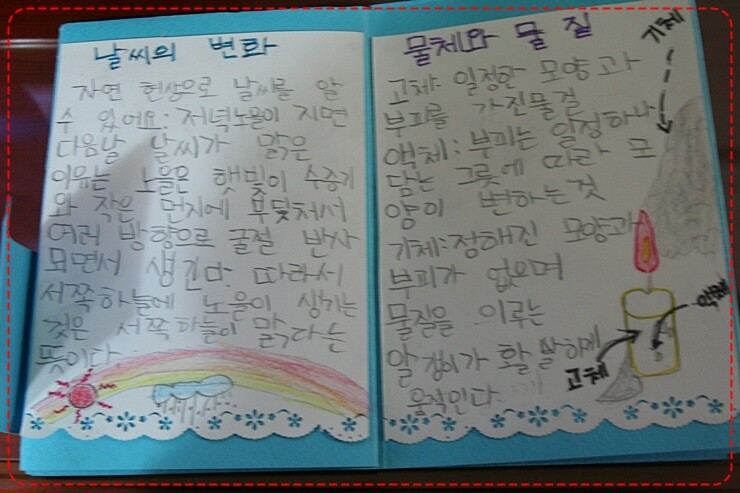 날씨의 변화
자연 현상으로 날씨를 알
수 있어요: 저녁노을이 지면
다음날 날씨가 맑은
이유는 노을은 햇빛이 수증기
와 작은 먼지에 부딪쳐서
여러 방향으로 굴절 반사
되면서 생긴다. 따라서
서쪽하늘에 노을이 생기는
것은 서쪽하늘이 맑다는
뜻이다.
물체와 물질
고체: 일정한 모양과
부피를 가진물결
액체: 부피는 일정하나
담는 그릇에 따라 모
양이 변하는것
기체:정해진 모양과
부피가 없으며
물질을 이루는
알갱이가 활발하게
움직인다
기체
액체
고체